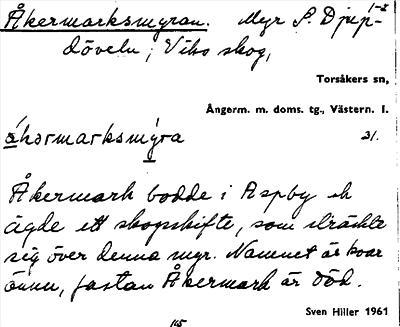 Åkermarksmyran. Myr S. Djup-
döveln, Vibo skog,
Torsåkers sn,
Ångerm. m. doms. tg., Västern. l.
31.
Åkermark bodde i Aspby ch
ägde ett skogsskifte, som sträckte
sig över denna myr. Namnet är kvar
ännu, fastän Åkermark är död.
Sven Hiller 1961
145